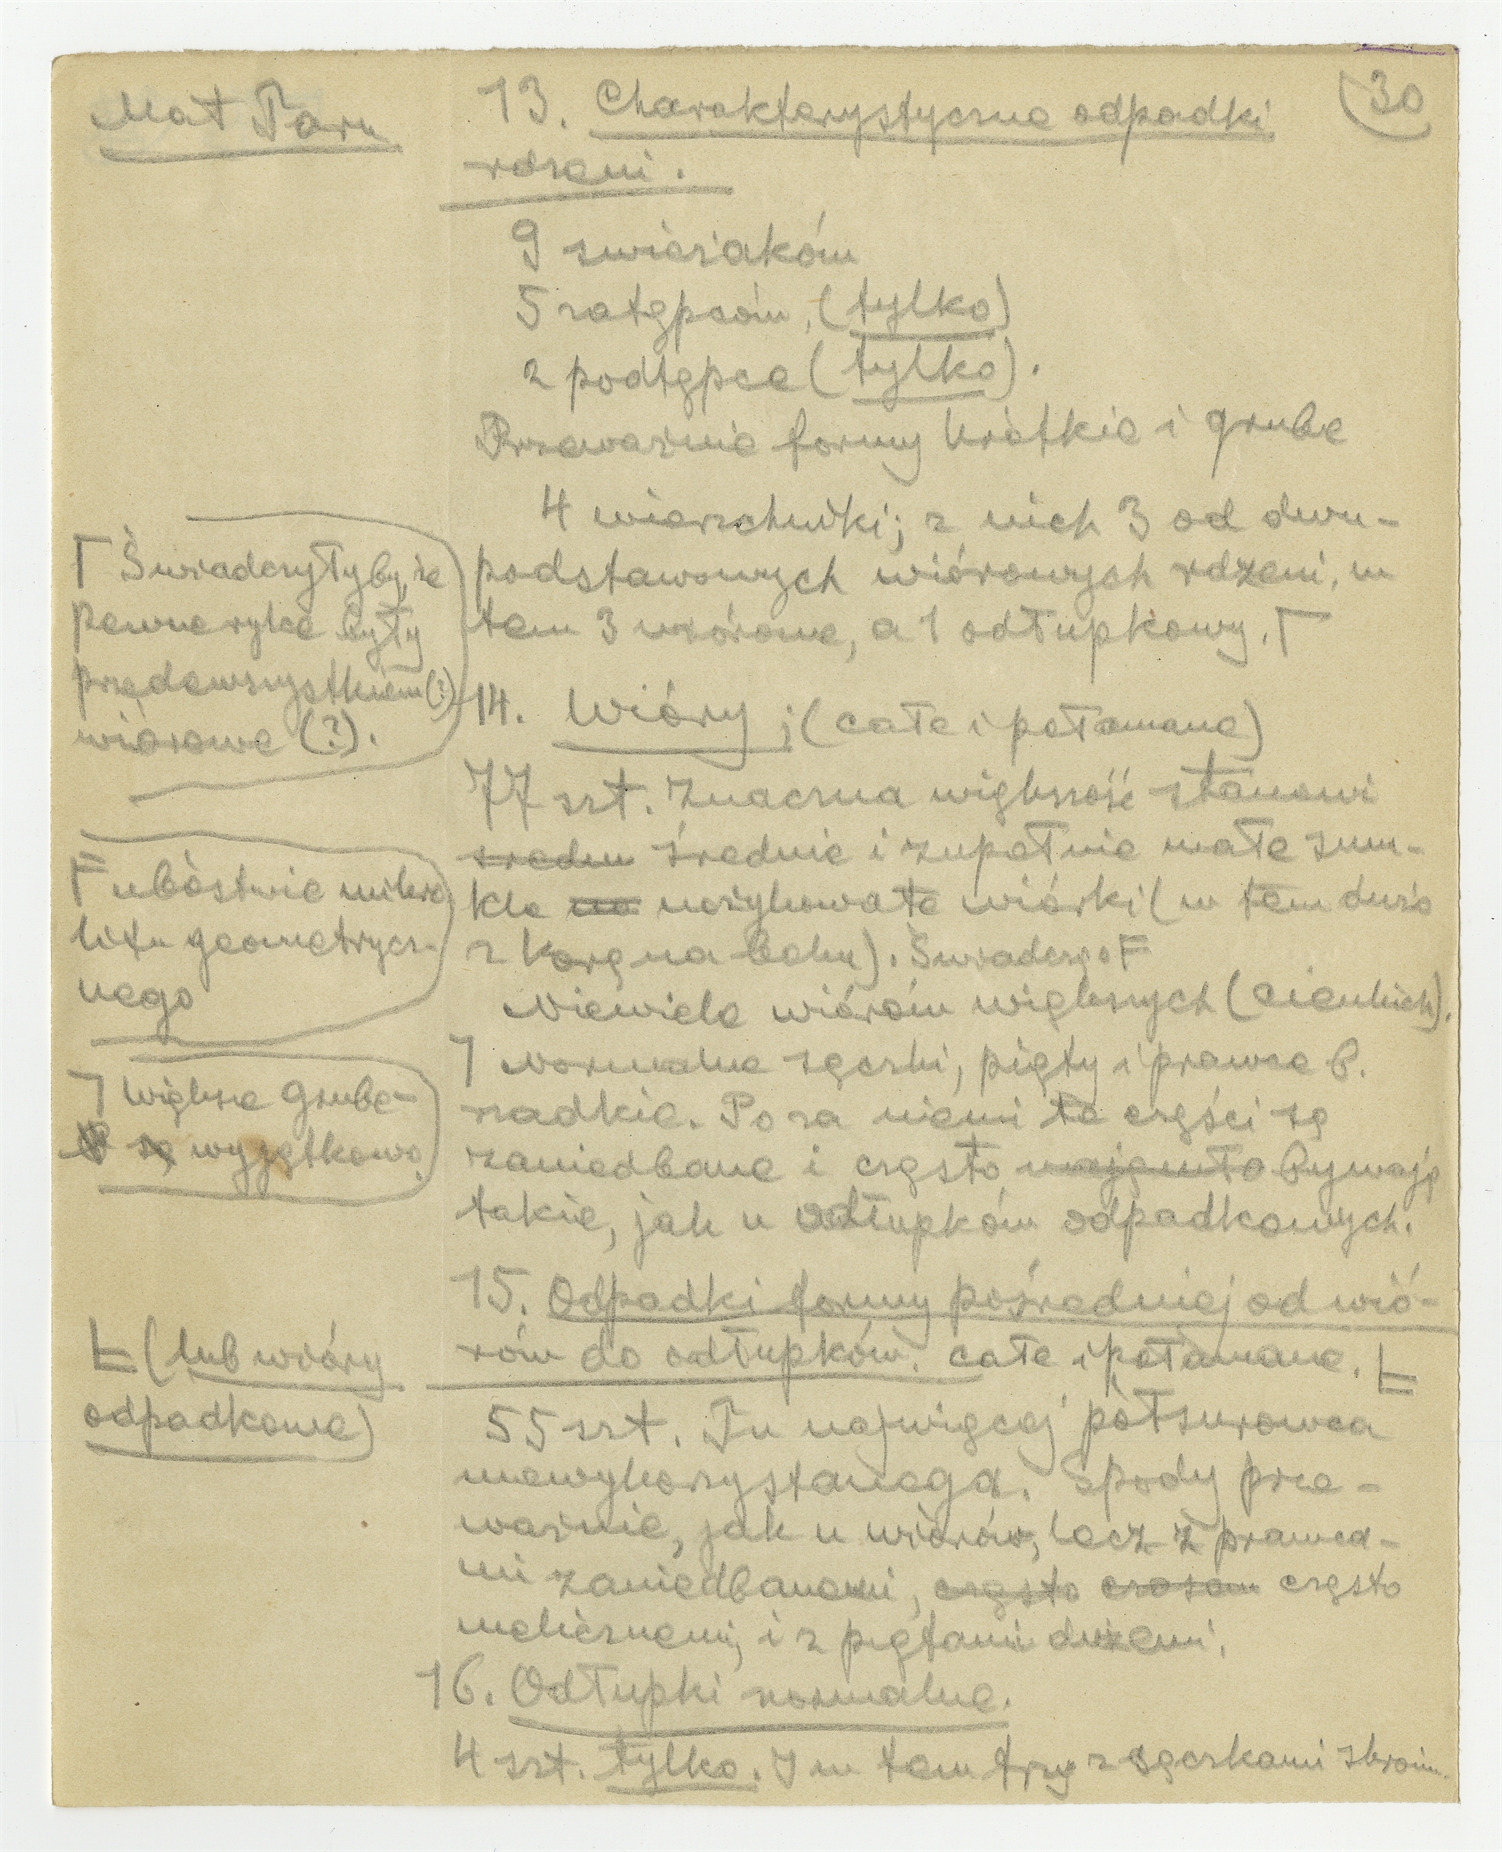 Mat Tarn
13. Charakterystyczne odpadki
30
rdzeni.
9 zwierzaków
5 zatępców, (tylko)
2 podtępce (tylko).
Przeważnie formy krótkie i grube
4 wierzchniki; z nich 3 od dwu-
podstawowych wiórowych rdzeni, w
tem 3 wiórowe, a 1 odłupkowy. Γ
Γ Świadczyłyby, że
pewne rylce były
przedewszystkiem (?)
wiórowe (?).
14. Wióry; (całe i połamane)
77 szt. Znaczna większość stanowi
średn średnie i zupełnie małe smu-
kłe na nożykowate wiórki (w tem dużo
z korą na boku). Świadczy o F
F ubóstwie mikro
litu geometrycz-
nego
Niewiele wiórów większych (cienkich).
ㄱ Większe grube-
są wyjątkowo.
ㄱ Normalne sęczki, pięty i prawce b.
rzadkie. Poza niemi te części są
zaniedbane i często bywają
takie, jak u odłupków odpadkowych.
15. Odpadki formy pośredniej od wió-
rów do odłupków. całe i połamane. E
E (lub wióry
odpadkowe)
55 szt. Tu najwięcej półsurowca
niewykorzystanego. Spody prze-
ważnie, jak u wiórów, lecz z prawca-
mi zaniedbanemi, często czasem często
nielicznemi, i z piętami dużemi.
16. Odłupki normalne.
4 szt. tylko. I w tem trzy z sęczkami skrom.